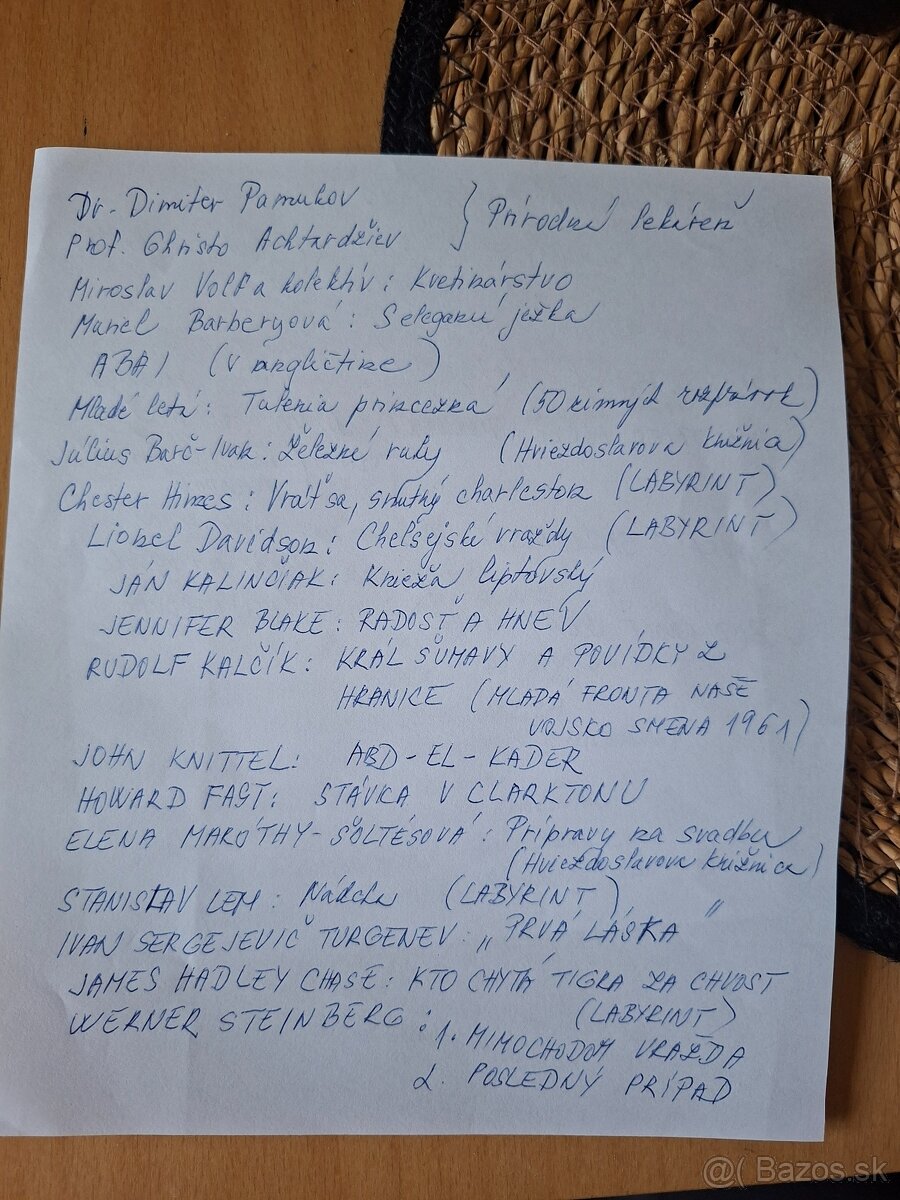 Dr. Dimiter Pamukov
Prof. Christo Achtardžiev } Prírodná lekáreň
Miroslav Volf a kolektív: Kvetinárstvo
Muriel Barberyová: S eleganciou ježka
ABAJ (v angličtine)
Mladé letá: Tulenia princezná (50 zimných rozprávok)
Július Barč-Ivan: Železné ruky (Hviezdoslavova knižnica)
Chester Himes: Vráť sa, smutný charleston (LABYRINT)
Lionel Davidson: Chelsejské vraždy (LABYRINT)
JÁN KALINČIAK: Knieža liptovský
JENNIFER BLAKE: RADOSŤ A HNEV
RUDOLF KALČÍK: KRÁL ŠUMAVY A POVÍDKY Z
HRANICE (MLADÁ FRONTA NAŠE
VOJSKO SMENA 1961)
JOHN KNITTEL: ABD-EL-KADER
HOWARD FAST: STÁVKA V CLARKTONU
ELENA MARÓTHY-ŠOLTÉSOVÁ: Prípravy na svadbu
(Hviezdoslavova knižnica)
STANISLAV LEM: Nádcha (LABYRINT)
IVAN SERGEJEVIČ TURGENEV: „PRVÁ LÁSKA"
JAMES HADLEY CHASE: KTO CHYTÁ TIGRA ZA CHVOST
(LABYRINT)
WERNER STEINBERG: 1. MIMOCHODOM VRAŽDA
2. POSLEDNÝ PRÍPAD
@( Bazos.sk